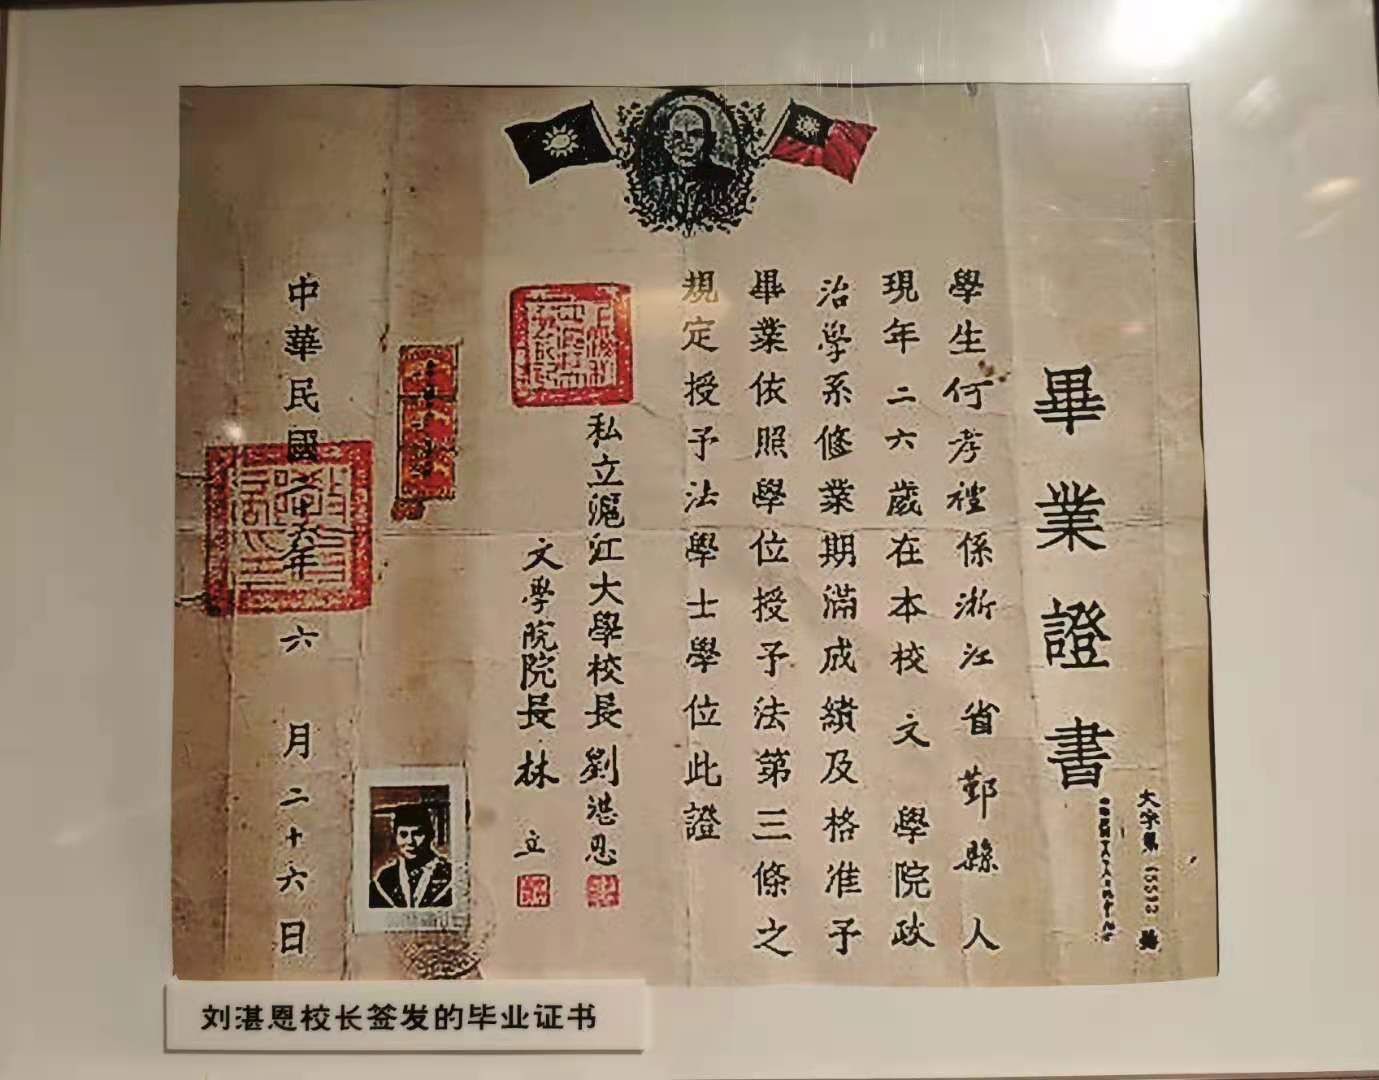 畢業證書
大字第 15513 號
學生何孝禮係浙江省鄞縣人
現年二六歲在本校文學院政
治學系修業期滿成績及格准予
畢業依照學位授予法第三條之
規定授予法學士學位此證
私立滬江大學校長劉湛恩
文學院院長林立
中華民國二十六年六月二十六日
刘湛恩校长签发的毕业证书